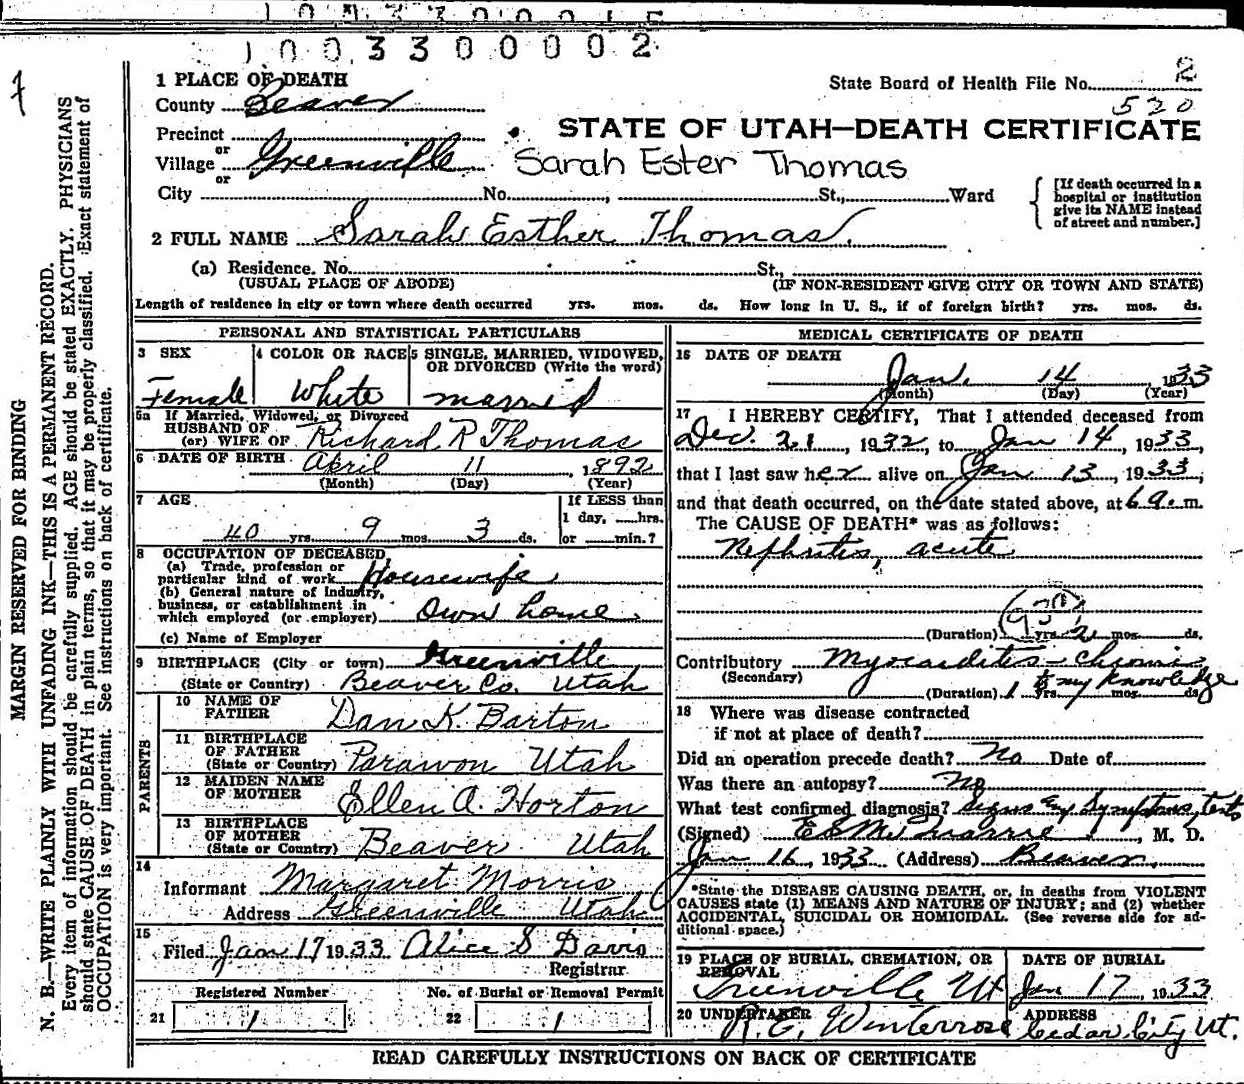 1003300002
1 PLACE OF DEATH
State Board of Health File No. 2
County Beaver
520
Precinct
STATE OF UTAH—DEATH CERTIFICATE
or
Village Greenville
Sarah Ester Thomas
or
City No. , St., Ward
[If death occurred in a
hospital or institution
give its NAME instead
of street and number.]
2 FULL NAME Sarah Esther Thomas
(a) Residence. No. St.,
(USUAL PLACE OF ABODE) (IF NON-RESIDENT GIVE CITY OR TOWN AND STATE)
Length of residence in city or town where death occurred yrs. mos. ds. How long in U. S., if of foreign birth? yrs. mos. ds.
PERSONAL AND STATISTICAL PARTICULARS
3 SEX
Female
4 COLOR OR RACE
White
5 SINGLE, MARRIED, WIDOWED,
OR DIVORCED (Write the word)
married
5a If Married, Widowed, or Divorced
HUSBAND OF
(or) WIFE OF Richard R Thomas
6 DATE OF BIRTH April 11, 1892
(Month) (Day) (Year)
7 AGE
40 yrs. 9 mos. 3 ds.
If LESS than
1 day, hrs.
or min.?
8 OCCUPATION OF DECEASED
(a) Trade, profession or
particular kind of work Housewife
(b) General nature of Industry,
business, or establishment in
which employed (or employer) Own home
(c) Name of Employer
9 BIRTHPLACE (City or town) Greenville
(State or Country) Beaver Co. Utah
PARENTS
10 NAME OF
FATHER Dan K. Barton
11 BIRTHPLACE
OF FATHER
(State or Country) Parawon Utah
12 MAIDEN NAME
OF MOTHER Ellen A. Horton
13 BIRTHPLACE
OF MOTHER
(State or Country) Beaver Utah
14
Informant Margaret Morris
Address Greenville Utah
15
Filed Jan 17 1933 Alice S Davis
Registrar
Registered Number
21 1
No. of Burial or Removal Permit
22 1
MEDICAL CERTIFICATE OF DEATH
16 DATE OF DEATH
Jan. 14, 1933
(Month) (Day) (Year)
17 I HEREBY CERTIFY, That I attended deceased from
Dec. 21, 1932, to Jan 14, 1933,
that I last saw her alive on Jan 13, 1933,
and that death occurred, on the date stated above, at 6 a. m.
The CAUSE OF DEATH* was as follows:
Nephritis, acute
(Duration) yrs. 2 mos. ds.
Contributory Myocarditis - chronic
(Secondary) to my knowledge
(Duration) 1 yrs. mos. ds.
18 Where was disease contracted
if not at place of death?
Did an operation precede death? No Date of
Was there an autopsy? No
What test confirmed diagnosis? Signs Symptoms, tests
(Signed) M. D.
Jan 16, 1933 (Address) Beaver
*State the DISEASE CAUSING DEATH, or, in deaths from VIOLENT
CAUSES state (1) MEANS AND NATURE OF INJURY; and (2) whether
ACCIDENTAL, SUICIDAL OR HOMICIDAL. (See reverse side for ad-
ditional space.)
19 PLACE OF BURIAL, CREMATION, OR
REMOVAL
Greenville Ut
DATE OF BURIAL
Jan 17, 1933
20 UNDERTAKER
R. E. Winterrose
ADDRESS
Cedar City Ut.
READ CAREFULLY INSTRUCTIONS ON BACK OF CERTIFICATE
MARGIN RESERVED FOR BINDING
N. B.—WRITE PLAINLY WITH UNFADING INK—THIS IS A PERMANENT RECORD.
Every item of information should be carefully supplied. AGE should be stated EXACTLY. PHYSICIANS
should state CAUSE OF DEATH in plain terms, so that it may be properly classified. Exact statement of
OCCUPATION is very important. See instructions on back of certificate.